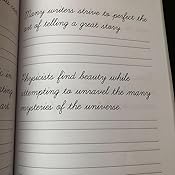 Many writers strive to perfect the
art of telling a great story.
Physicists find beauty while
attempting to unravel the many
mysteries of the universe.